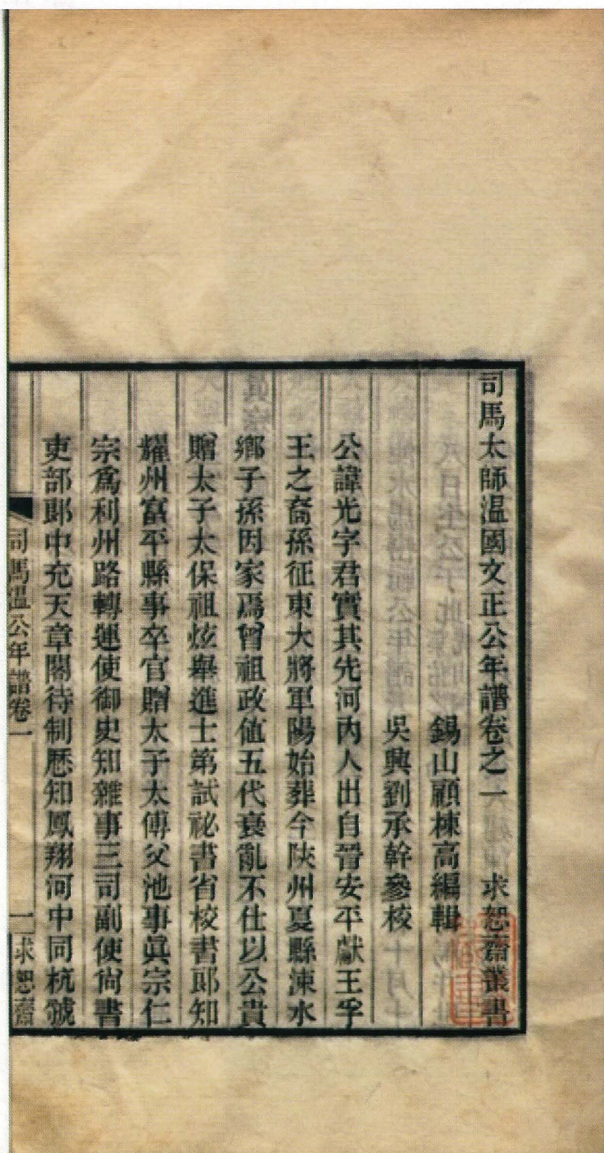 司馬太師溫國文正公年譜卷之一　求恕齋叢書
錫山顧棟高編輯
吳興劉承幹參校
公諱光字君實其先河內人出自晉安平獻王孚
王之裔孫征東大將軍陽始葬今陝州夏縣涑水
鄉子孫因家焉曾祖政值五代衰亂不仕以公貴
贈太子太保祖炫舉進士第試祕書省校書郎知
耀州富平縣事卒官贈太子太傅父池事眞宗仁
宗爲利州路轉運使御史知雜事三司副使尙書
吏部郎中充天章閣待制歷知鳳翔河中同杭虢
司馬溫公年譜卷一　一　求恕齋